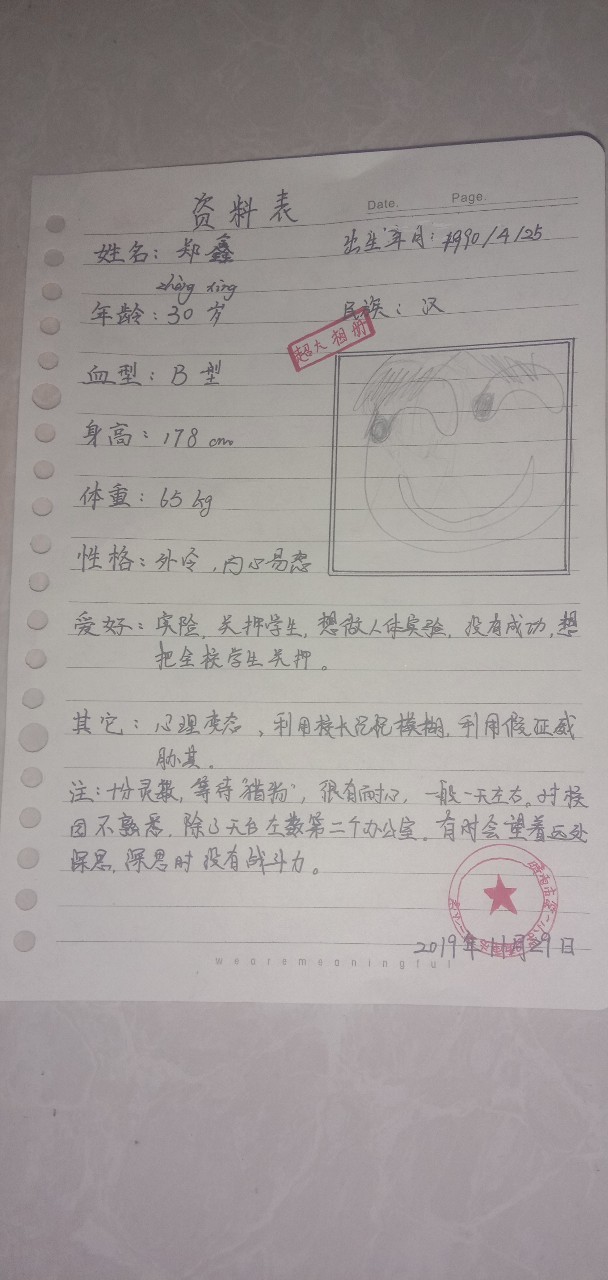 资料表
Date. Page.
姓名：郑鑫 出生年月：1990/4/25
zhèng xīng
年龄：30岁 民族：汉
超大相册
血型：B型
身高：178cm
体重：65kg
性格：外冷，内心易怒
爱好：实险，关押学生，想做人体实验，没有成功，想
把全校学生关押。
其它：心理变态，利用校长记忆模糊，利用假证威
胁其。
注：十分灵敏，等待“猎物”，很有耐心，一般一天左右。对校
园不熟悉，除了天台左数第二个办公室。有时会望着远处
深思，深思时没有战斗力。
2019年11月29日
wearemeaningful